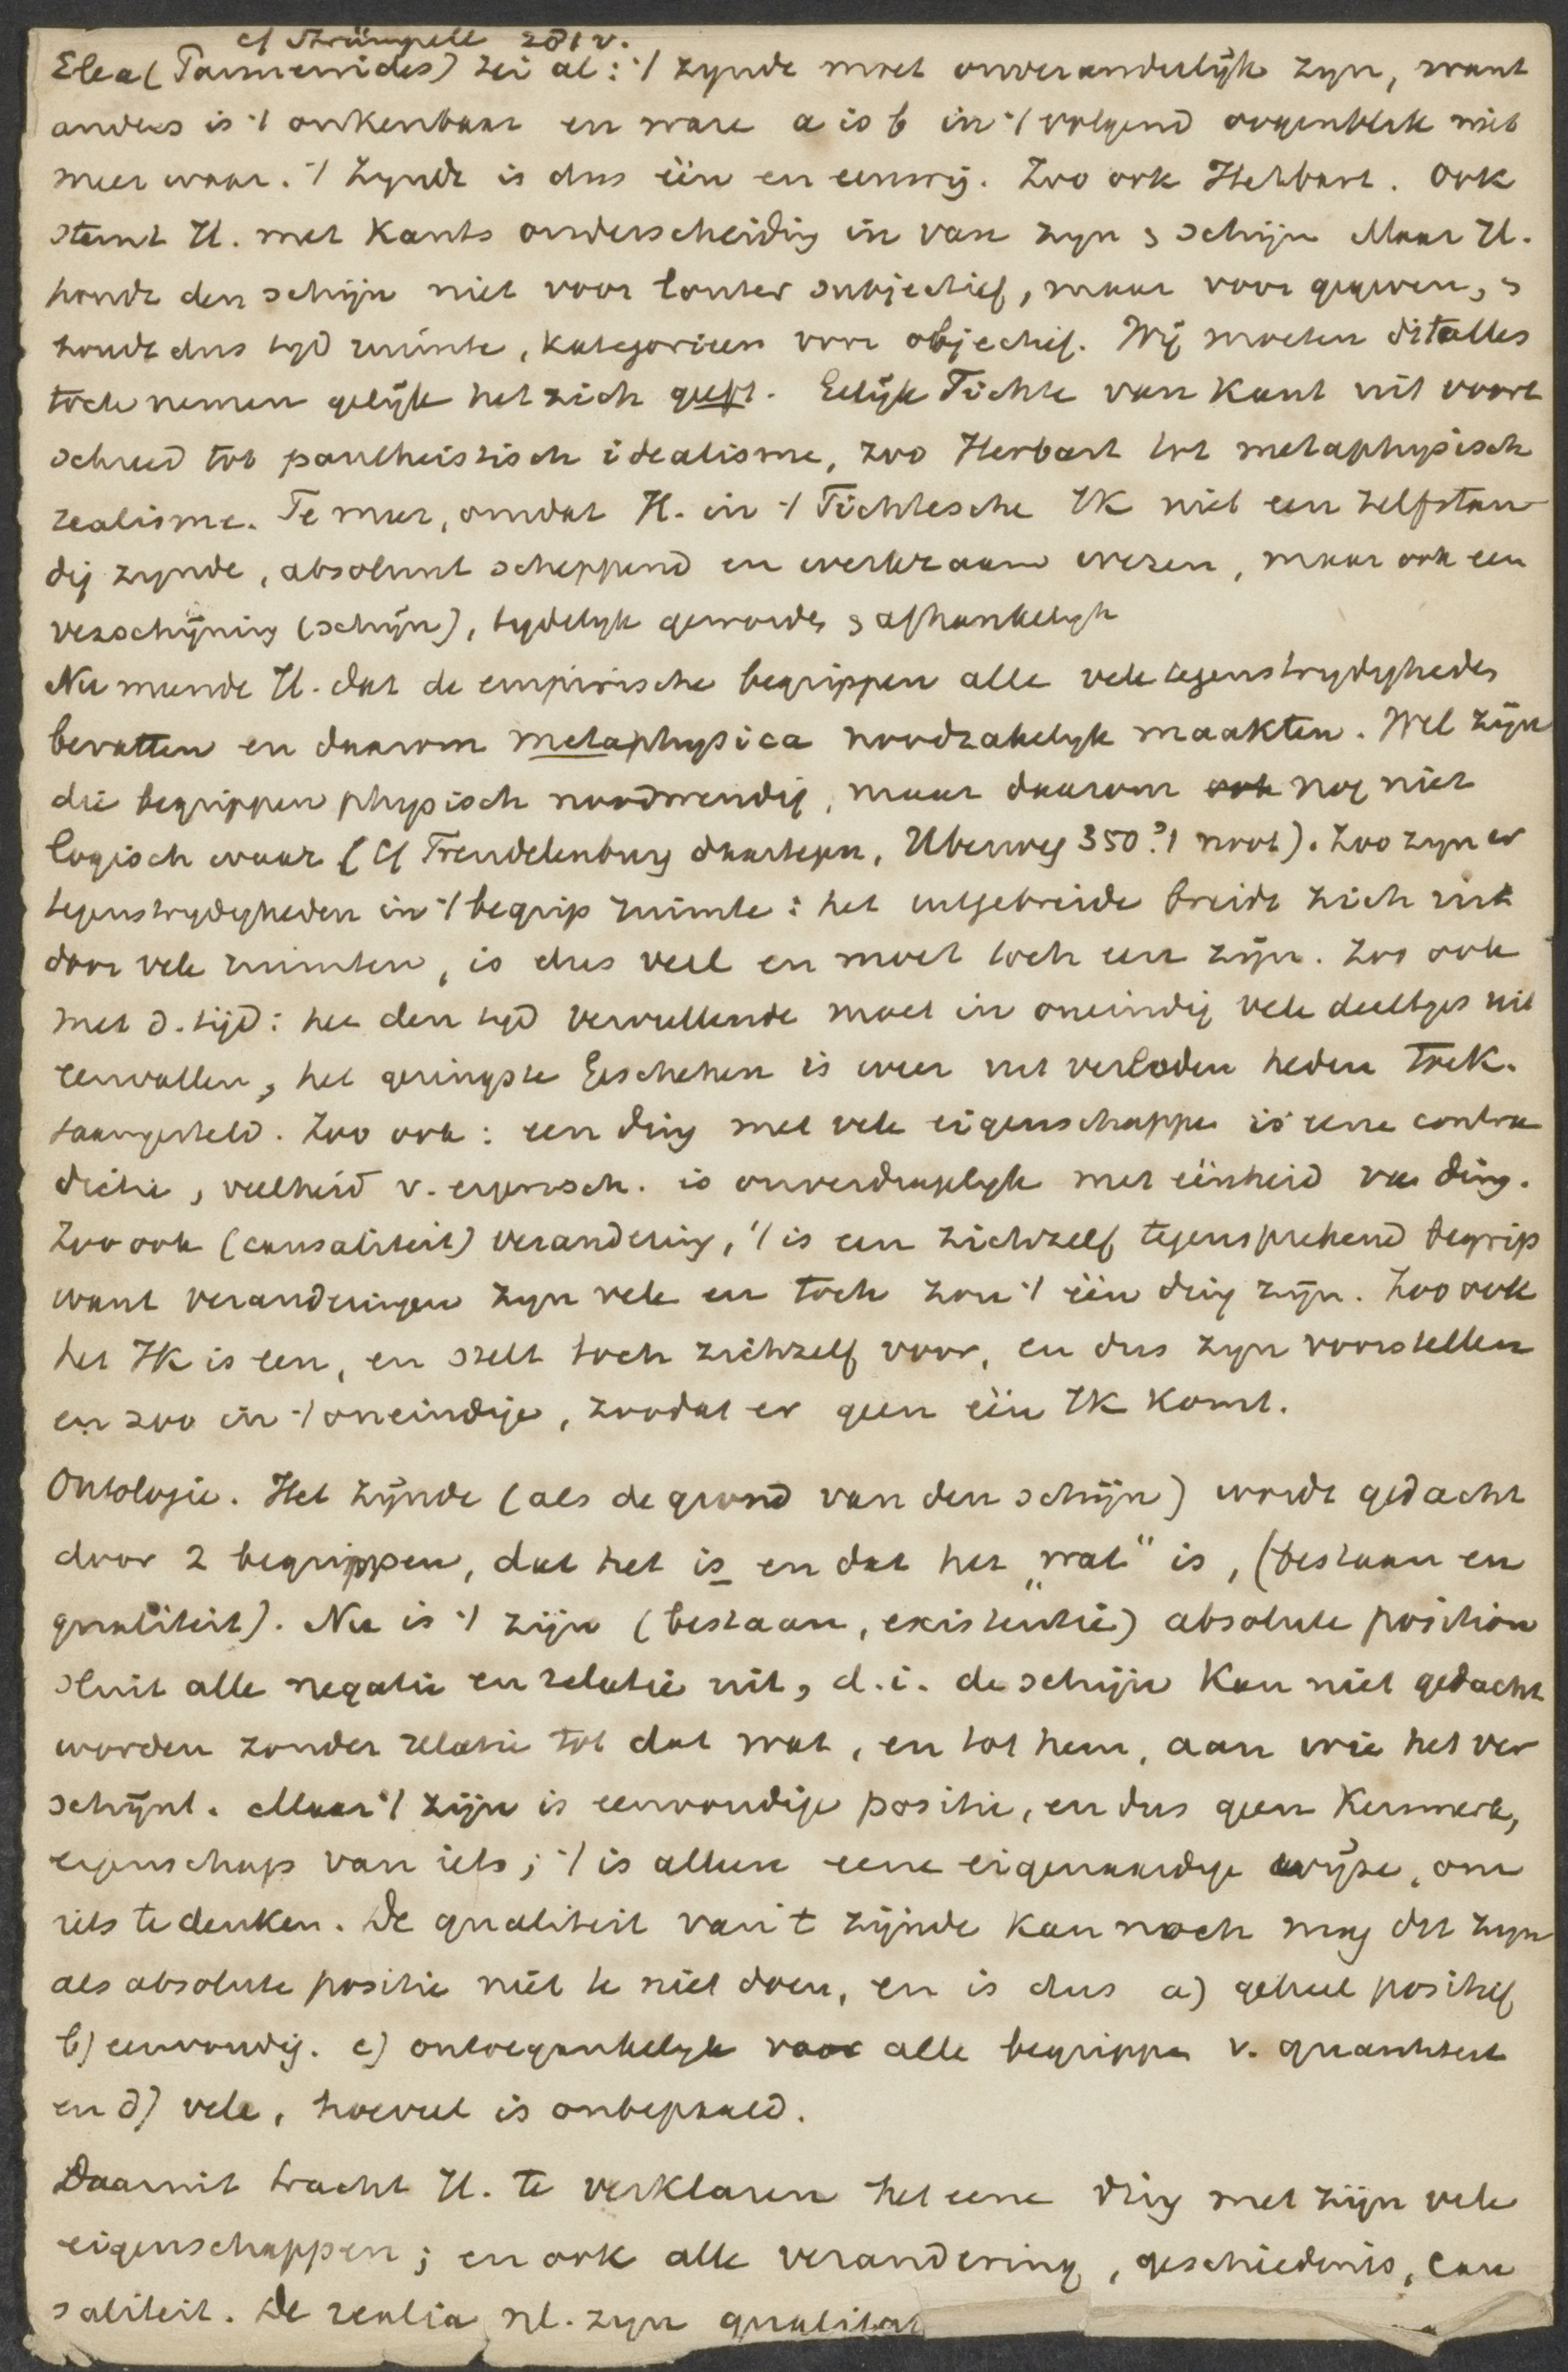 cf Strümpell 281 v.
Elea (Parmenides) zei al: 't zynde moet onveranderlijk zyn, want
anders is 't onkenbaar en ware a is b in 't volgend oogenblik niet
meer waar. 't Zynde is dus één en eeuwig. Zoo ook Herbart. Ook
stemt H. met Kants onderscheiding in van zyn & schijn Maar H.
houdt den schijn niet voor louter subjectief, maar voor gegeven, &
houdt dus tyd ruimte, kategorieen voor objectief. Wij moeten dit alles
toch nemen gelijk het zich geeft. Gelijk Fichte van Kant uit voort
schreed tot pantheistisch idealisme, zoo Herbart tot metaphysisch
realisme. Te meer, omdat H. in 't Fichtesche IK niet een zelfstan
dig zynde, absoluut scheppend en werkzaam wezen, maar ook een
verschijning (schijn), tydelyk geworden & afhankelyk
Nu meende H. dat de empirische begrippen alle vele tegenstrydigheden
bevatten en daarom metaphysica noodzakelyk maakten. Wel zijn
die begrippen physisch noodwendig, maar daarom ook nog niet
logisch waar (Cf Trendelenburg daartegen, Uberweg 350 ?1 noot). Zoo zyn er
tegenstrydigheden in 't begrip ruimte: het uitgebreide breidt zich uit
door vele ruimten, is dus veel en moet toch een zijn. Zoo ook
met d. tijd: het den tyd vervullende moet in oneindig vele deeltjes uit
eenvallen, het geringste Geschehen is weer uit verleden heden Toek.
saamgesteld. Zoo ook: een ding met vele eigenschappen is eene contra
dictie, veelheid v. eigensch. is onverdragelyk met éénheid van ding.
Zoo ook (causaliteit) verandering, 't is een zichzelf tegensprekend begrip
want veranderingen zyn vele en toch zou 't één ding zijn. Zoo ook
het IK is een, en stelt toch zichzelf voor, en dus zyn voorstellen
en zoo in 't oneindige, zoodat er geen één IK komt.
Ontologie. Het zijnde (als de grond van den schijn) wordt gedacht
door 2 begrippen, dat het is en dat het „wat" is, (bestaan en
qualiteit). Nu is 't zijn (bestaan, existentie) absolute position
sluit alle negatie en relatie uit, d.i. de schijn kan niet gedacht
worden zonder relatie tot dat wat, en tot hem, aan wie het ver
schijnt. Maar 't zijn is eenvoudige positie, en dus geen Kenmerk,
eigenschap van iets; 't is alleen eene eigenaardige wijze, om
iets te denken. De qualiteit van 't zijnde kan noch mag dit zyn
als absolute positie niet te niet doen, en is dus a) geheel positief
b) eenvoudig. c) ontoegankelyk voor alle begrippen v. quantiteit
en d) vele, hoeveel is onbepaald.
Daaruit tracht H. te verklaren het eene ding met zijn vele
eigenschappen; en ook alle verandering, geschiedenis, cau
saliteit. De realia nl. zyn qualitat